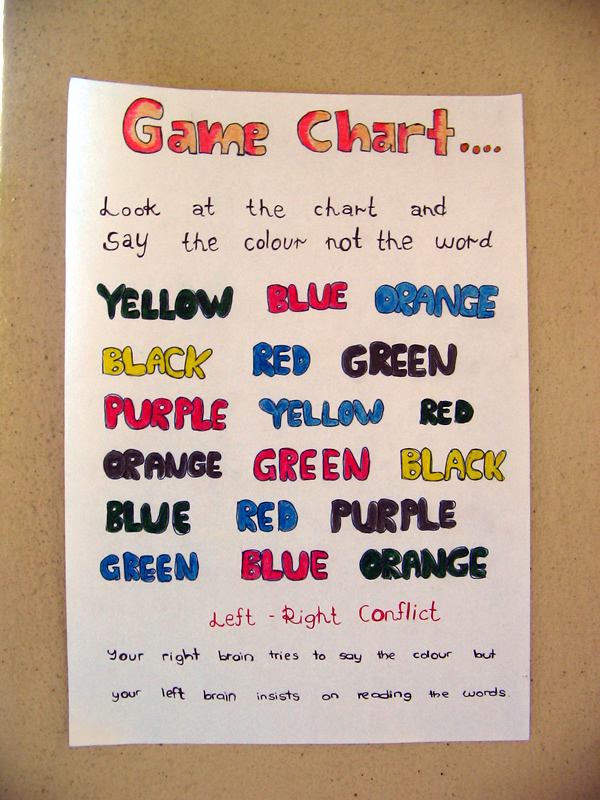 Game Chart....
Look at the chart and
Say the colour not the word
YELLOW BLUE ORANGE
BLACK RED GREEN
PURPLE YELLOW RED
ORANGE GREEN BLACK
BLUE RED PURPLE
GREEN BLUE ORANGE
Left - Right Conflict
Your right brain tries to say the colour but
your left brain insists on reading the words.